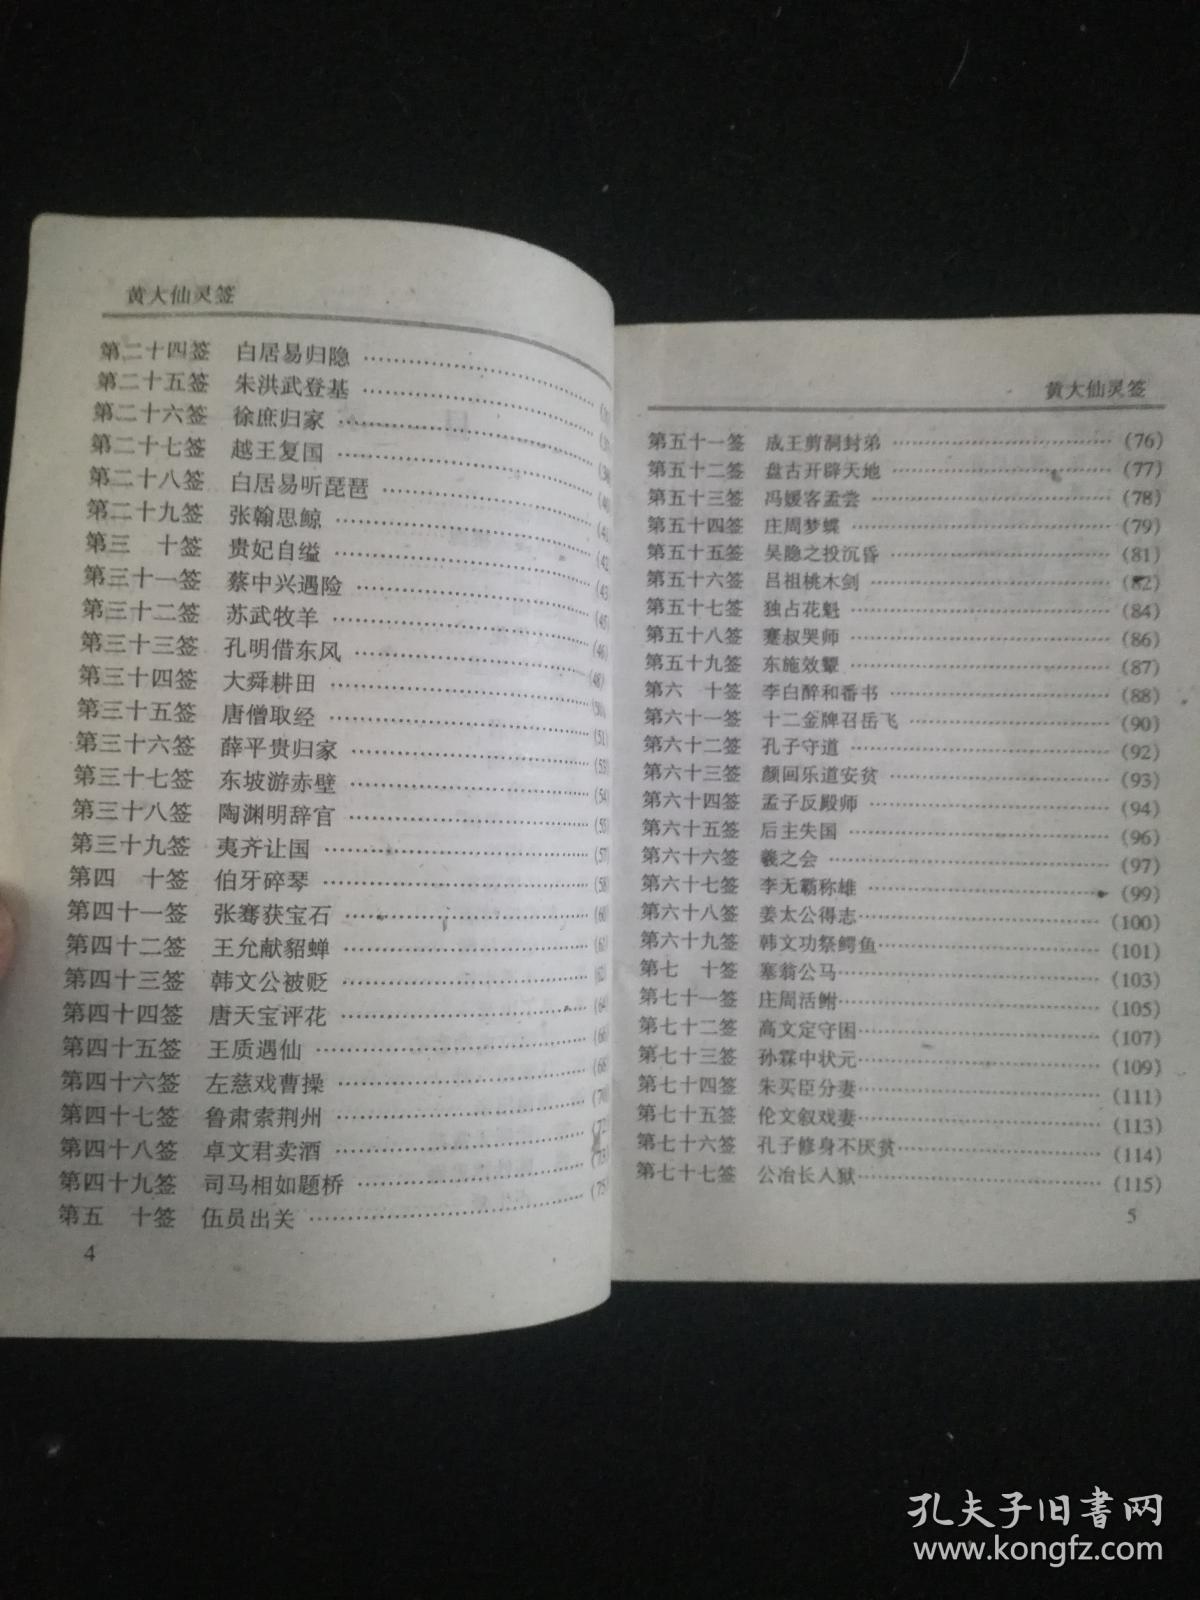 黄大仙灵签
第二十四签 白居易归隐
第二十五签 朱洪武登基
第二十六签 徐庶归家
第二十七签 越王复国
第二十八签 白居易听琵琶 (40)
第二十九签 张翰思鲸 (41)
第三 十签 贵妃自缢 (42
第三十一签 蔡中兴遇险 (43
第三十二签 苏武牧羊 (45)
第三十三签 孔明借东风 (46)
第三十四签 大舜耕田 (48)
第三十五签 唐僧取经 (50)
第三十六签 薛平贵归家 (51)
第三十七签 东坡游赤壁 (53)
第三十八签 陶渊明辞官 (54)
第三十九签 夷齐让国 (55)
第四 十签 伯牙碎琴 (57)
第四十一签 张骞获宝石 (58)
第四十二签 王允献貂蝉 (60)
第四十三签 韩文公被贬 (62)
第四十四签 唐天宝评花 (64)
第四十五签 王质遇仙 (66)
第四十六签 左慈戏曹操 (68)
第四十七签 鲁肃索荆州 (70)
第四十八签 卓文君卖酒 (72)
第四十九签 司马相如题桥 (73)
第五 十签 伍员出关 (75)
4
黄大仙灵签
第五十一签 成王剪洞封弟 (76)
第五十二签 盘古开辟天地 (77)
第五十三签 冯媛客孟尝 (78)
第五十四签 庄周梦蝶 (79)
第五十五签 吴隐之投沉昏 (81)
第五十六签 吕祖桃木剑 (82)
第五十七签 独占花魁 (84)
第五十八签 蹇叔哭师 (86)
第五十九签 东施效颦 (87)
第六 十签 李白醉和番书 (88)
第六十一签 十二金牌召岳飞 (90)
第六十二签 孔子守道 (92)
第六十三签 颜回乐道安贫 (93)
第六十四签 孟子反殿师 (94)
第六十五签 后主失国 (96)
第六十六签 羲之会 (97)
第六十七签 李无霸称雄 (99)
第六十八签 姜太公得志 (100)
第六十九签 韩文功祭鳄鱼 (101)
第七 十签 塞翁公马 (103)
第七十一签 庄周活鲋 (105)
第七十二签 高文定守困 (107)
第七十三签 孙霖中状元 (109)
第七十四签 朱买臣分妻 (111)
第七十五签 伦文叙戏妻 (113)
第七十六签 孔子修身不厌贫 (114)
第七十七签 公冶长入狱 (115)
5
孔夫子旧书网
www.kongfz.com